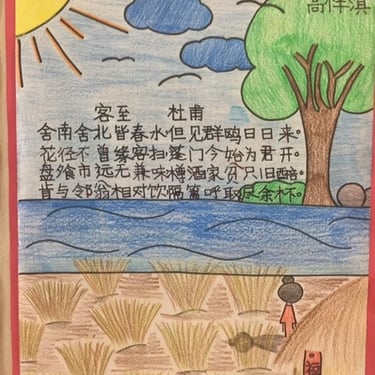 高伴淇
客至 杜甫
舍南舍北皆春水但见群鸥日日来。
花径不曾缘客扫蓬门今始为君开。
盘飧市远无兼味樽酒家贫只旧醅。
肯与邻翁相对饮隔篱呼取尽余杯。
福